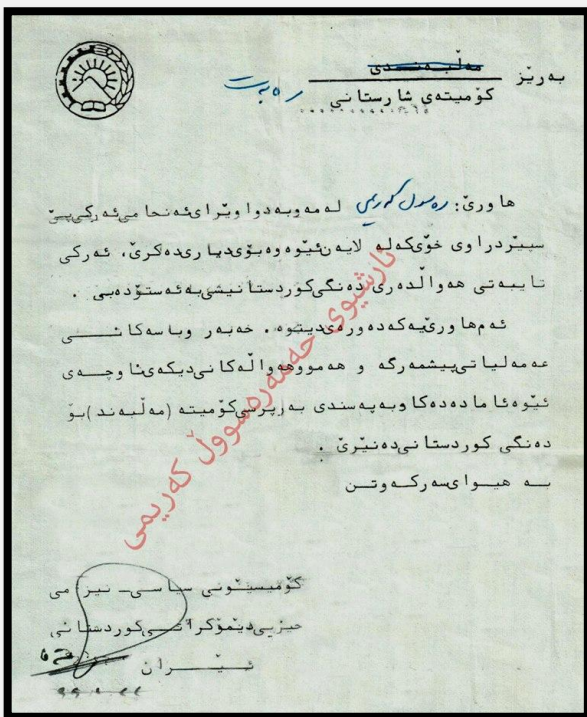 بەرێز
مەڵبەندی
کۆمیتەی شارستانی
ربت
هاورێ: رەسول کەریمی لەمەوبەدوا وێرای ئەنجامی ئەرکی پێ
سپێردراوی خۆی کە لە لایەن ئێوە وە بۆی دیاری دەکرێ، ئەرکی
تایبەتی هەواڵدەری دەنگی کوردستانیشی بە ئەستۆ دەبی .
ئەم هاورێیە کە دەورەی دیتوە. خەبەر وباسەکانی
عەمەلیاتی پیشمەرگە و هەموو هەواڵەکانی دیکەی ناوچەی
ئێوە ئامادە دەکا و بە پەسندی بەرپرسی کۆمیتە (مەڵبەند) بۆ
دەنگی کوردستانی دەنێرێ .
بە هیوای سەرکەوتن
کۆمیسیۆنی سیاسی - نیزامی
حیزبی دێمۆکراتی کوردستانی
ئێران
ئارشیوی حەمەرەسووڵ کەریمی